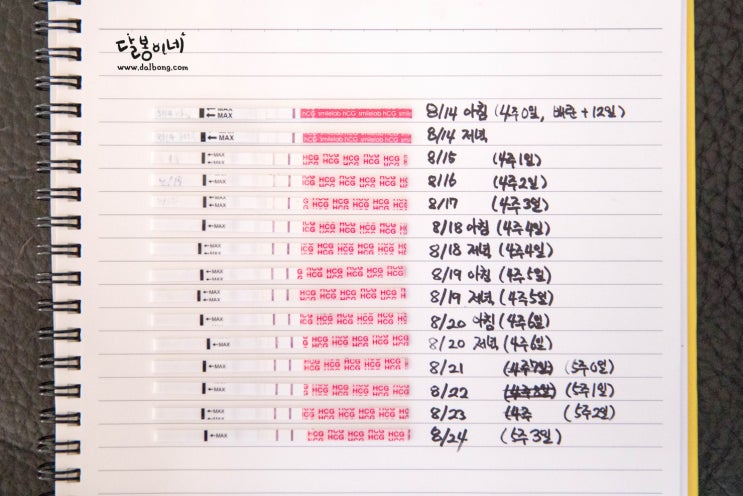 달봉이네
www.dalbong.com
MAX MAX HCG smilelab HCG smilelab HCG smilelab 8/14 아침 (4주0일, 배란+12일)
MAX 8/14 저녁
MAX MAX HCG HCG HCG HCG HCG 8/15 (4주1일)
MAX MAX HCG HCG HCG HCG HCG 8/16 (4주2일)
MAX MAX HCG HCG HCG HCG HCG 8/17 (4주3일)
MAX HCG HCG HCG HCG 8/18 아침 (4주4일)
MAX HCG HCG HCG HCG 8/18 저녁 (4주4일)
MAX MAX HCG HCG HCG HCG 8/19 아침 (4주5일)
MAX MAX HCG HCG HCG HCG 8/19 저녁 (4주5일)
MAX HCG HCG HCG HCG 8/20 아침 (4주6일)
MAX HCG HCG HCG HCG 8/20 저녁 (4주6일)
MAX HCG HCG HCG HCG 8/21 (4주7일) (5주0일)
MAX HCG HCG HCG HCG 8/22 (5주1일)
MAX MAX HCG HCG HCG HCG 8/23 (4주 (5주2일)
MAX HCG HCG HCG HCG 8/24 (5주3일)